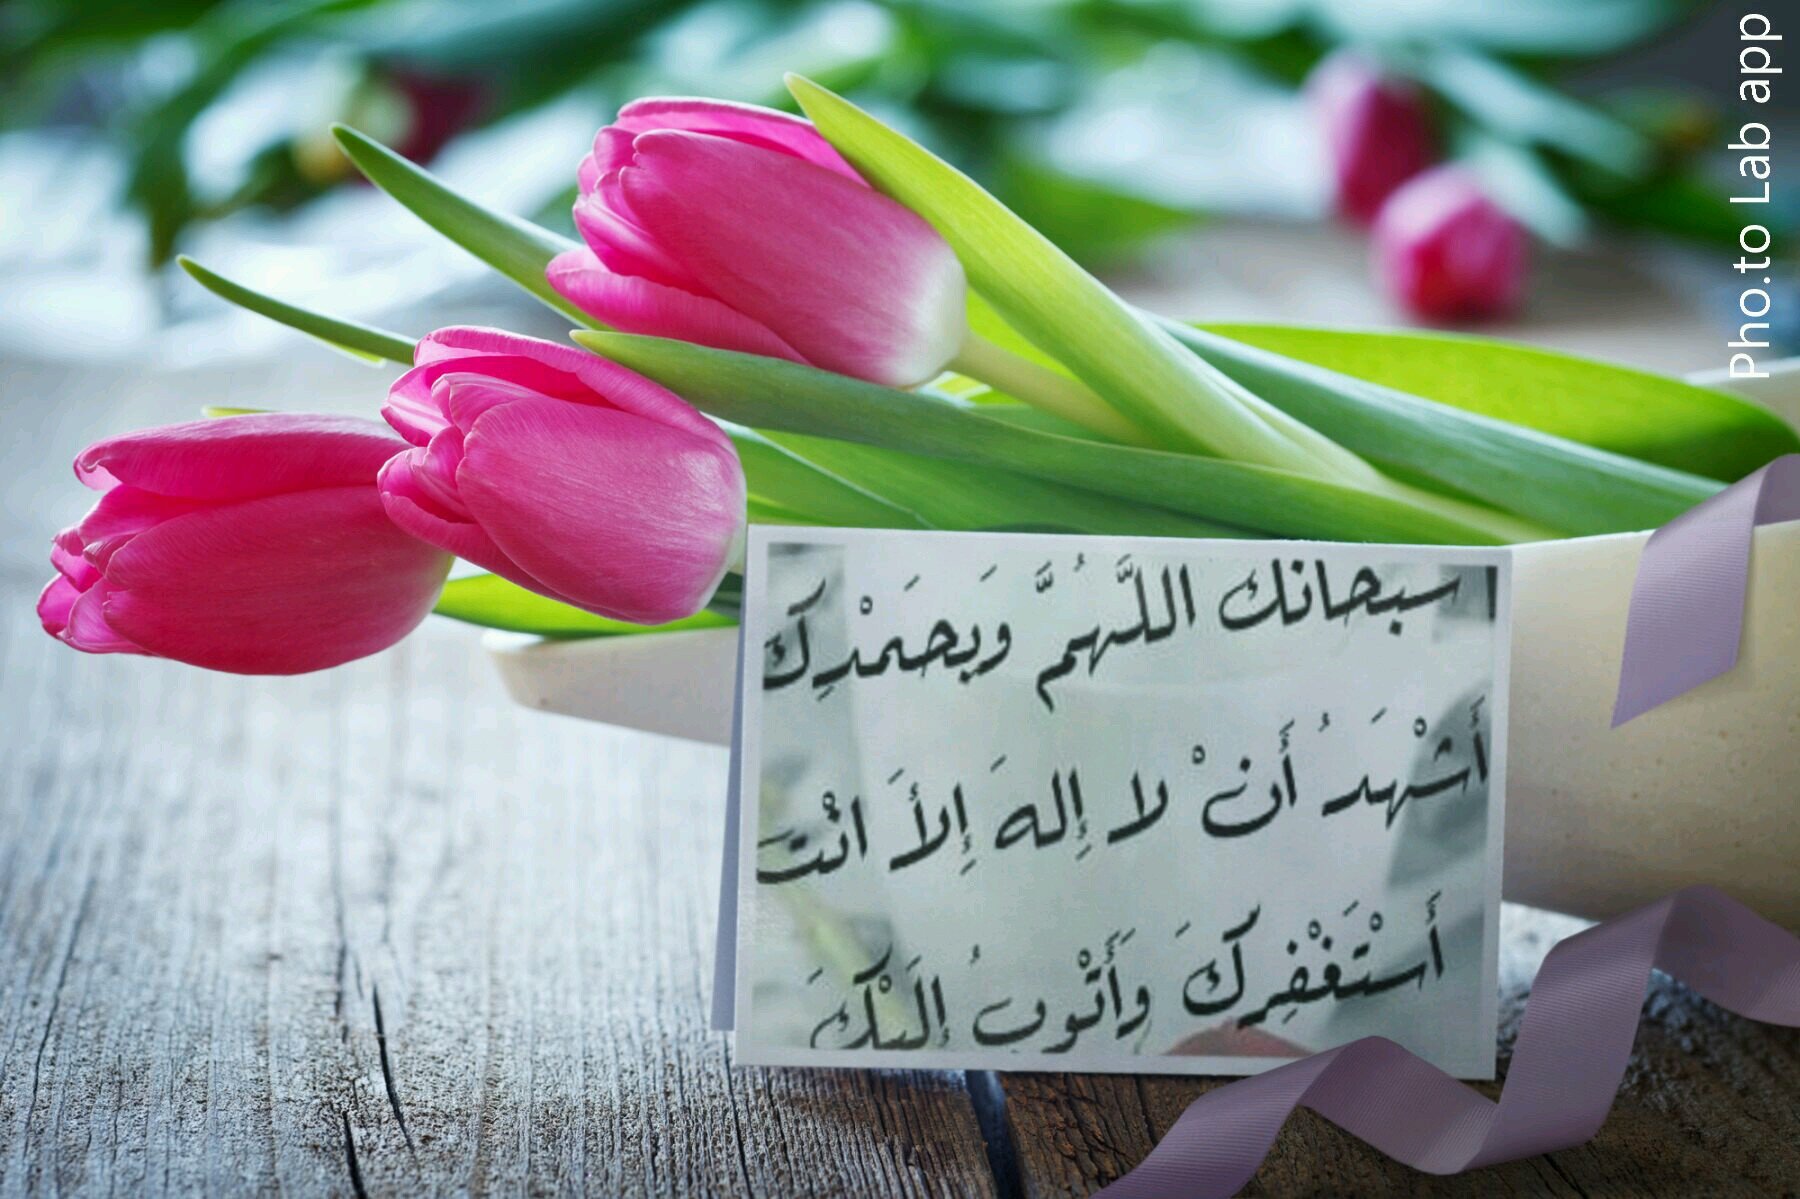 سبحانك اللَّهُمَّ وَبحَمْدِكَ
أَشْهَدُ أَنْ لا إِلهَ إِلأَ انْتَ
أَسْتَغْفِركَ وَأَتْوبُ إِلَيْكَ
Pho.to Lab app